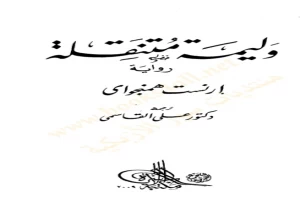 وليمة متنقلة
رواية
إرنست همنجواي
ترجمة
دكتور علي القاسمي